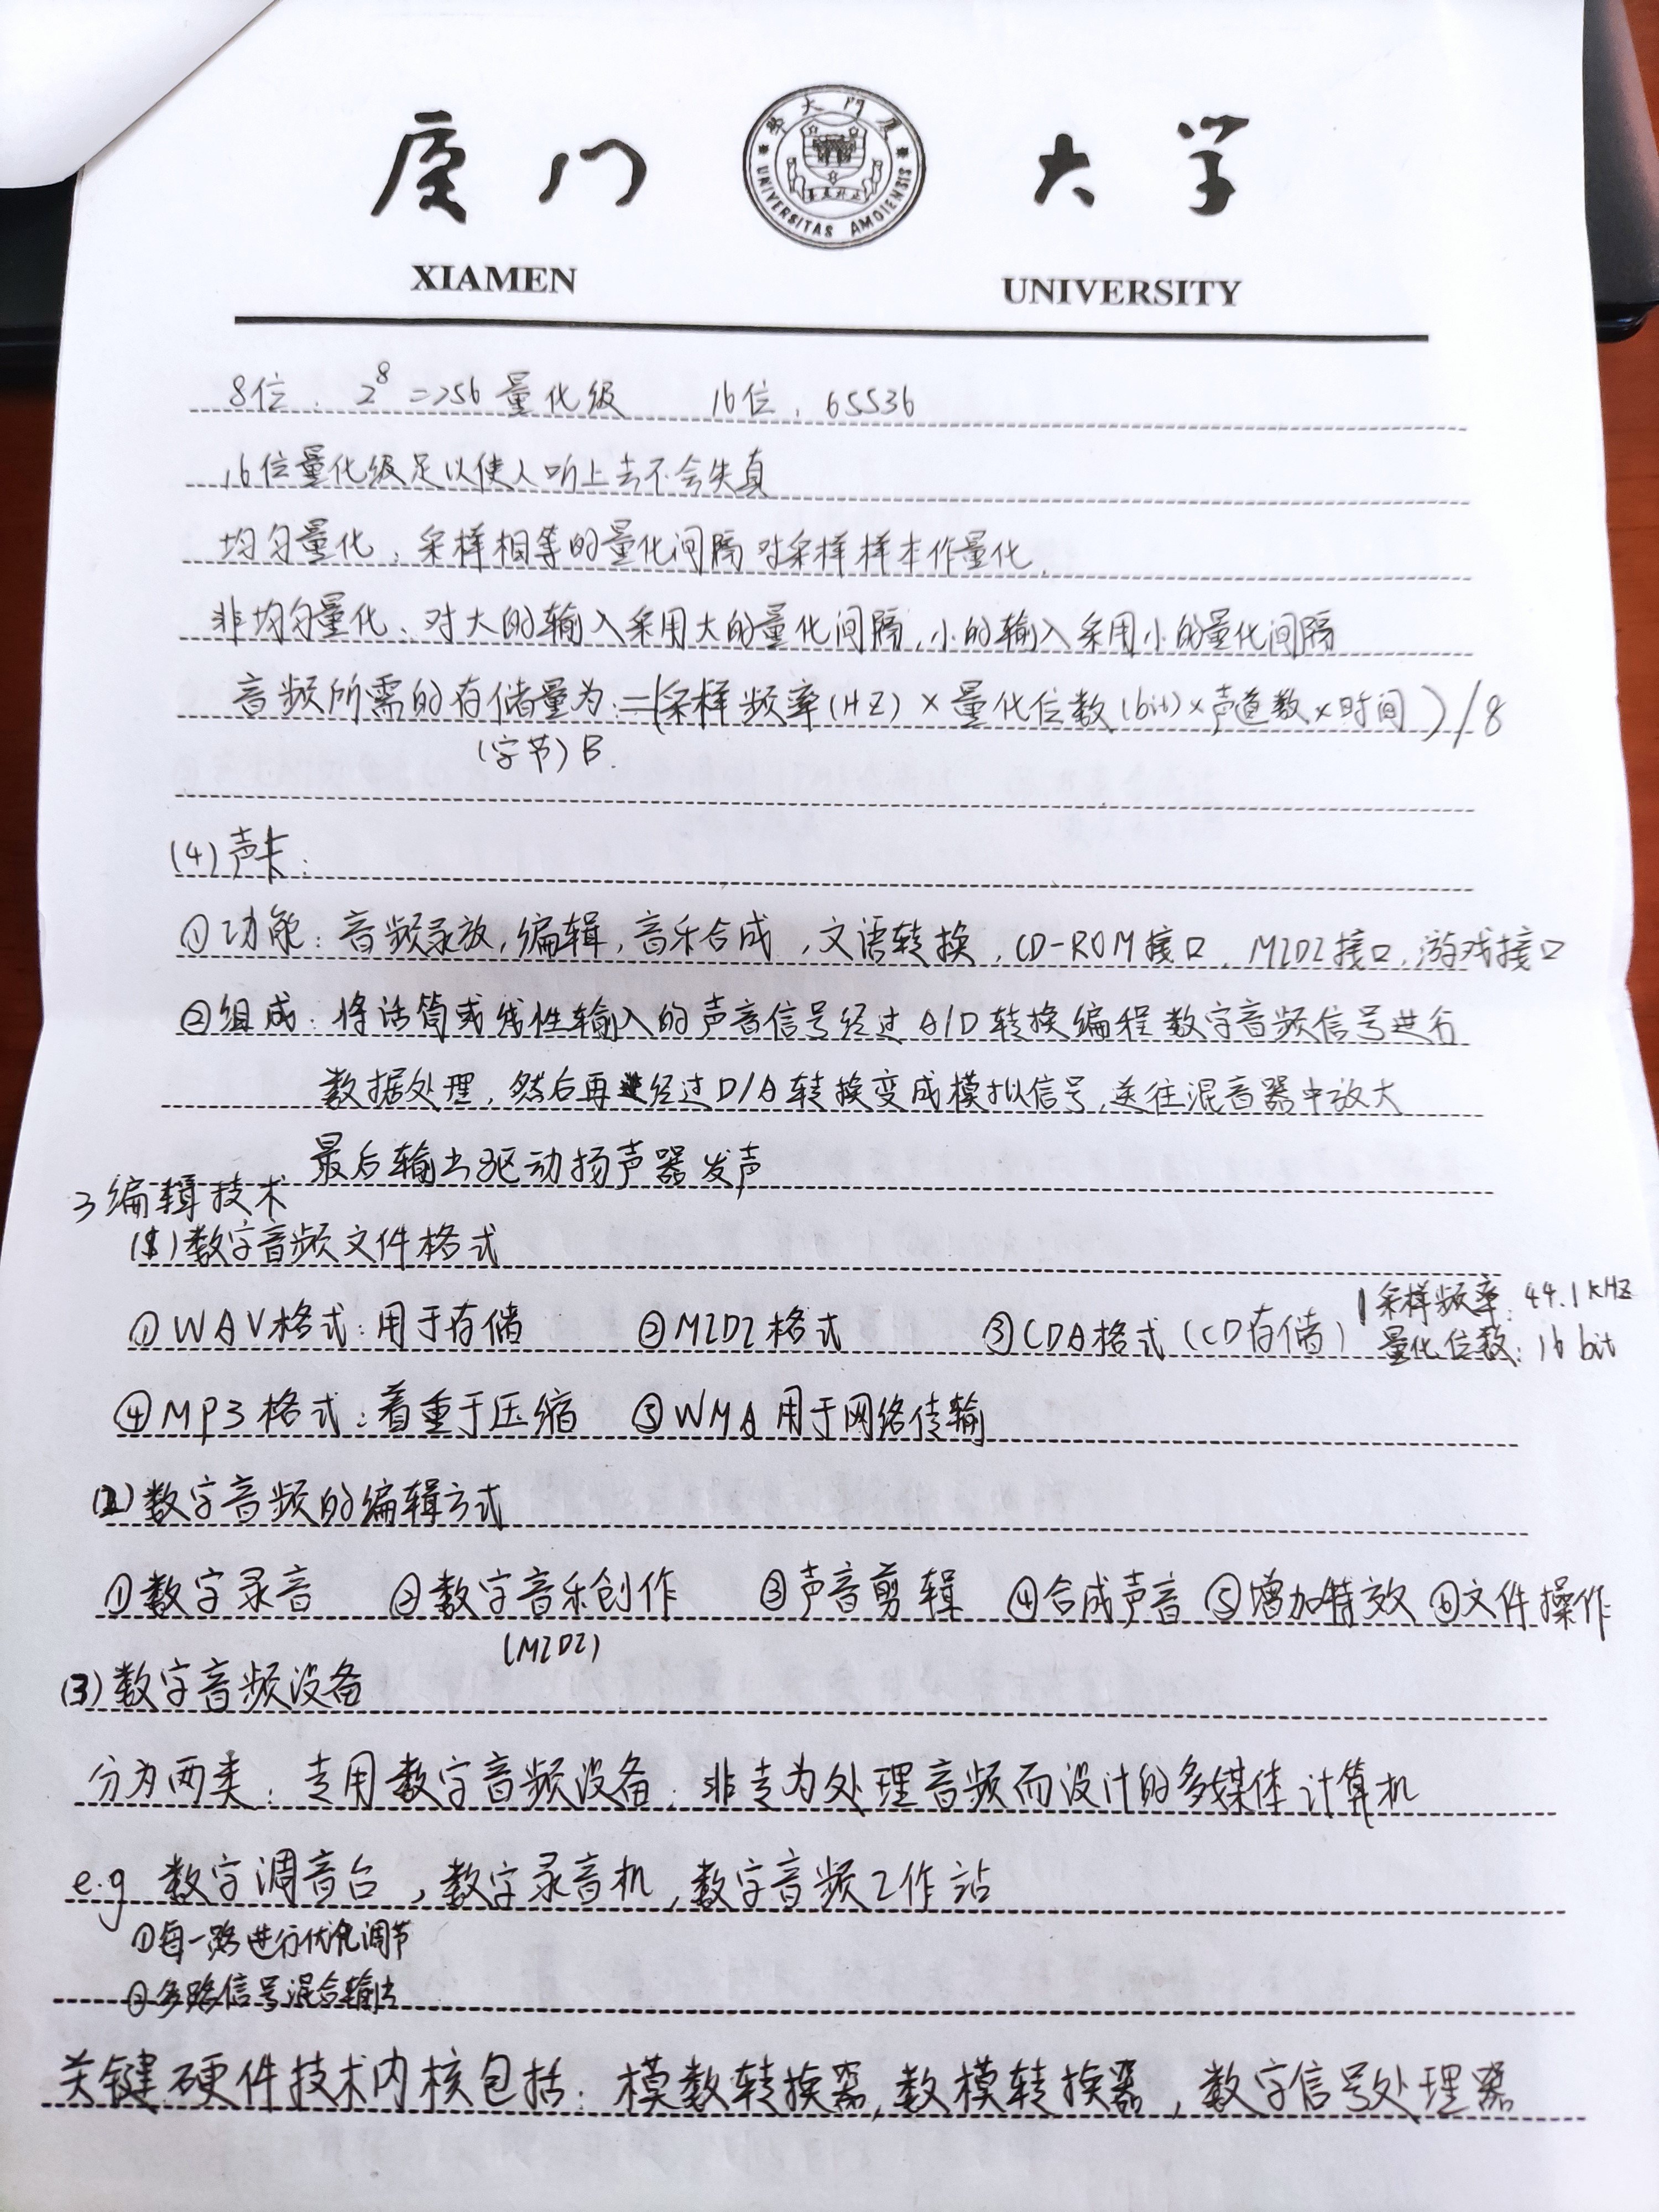 厦门大学
厦门大学
UNIVERSITAS AMOIENSIS
XIAMEN UNIVERSITY
8位：2⁸=256量化级 16位：65536
16位量化级足以使人听上去不会失真
均匀量化：采样相等的量化间隔对采样样本作量化.
非均匀量化：对大的输入采用大的量化间隔,小的输入采用小的量化间隔
音频所需的存储量为:=(采样频率(HZ)×量化位数(bit)×声道数×时间)/8
(字节)B.
(4)声卡:
①功能：音频录放,编辑,音乐合成,文语转换,CD-ROM接口,MIDI接口,游戏接口
②组成：将话筒或线性输入的声音信号经过A/D转换编程数字音频信号进行
数据处理,然后再经过D/A转换变成模拟信号,送往混音器中放大
最后输出驱动扬声器发声
3编辑技术
(1)数字音频文件格式
①WAV格式：用于存储 ②MIDI格式 ③CDA格式(CD存储) 采样频率:44.1KHZ
量化位数:16 bit
④MP3格式：着重于压缩 ⑤WMA用于网络传输
(2)数字音频的编辑方式
①数字录音 ②数字音乐创作 ③声音剪辑 ④合成声音 ⑤增加特效 ⑥文件操作
(MIDI)
(3)数字音频设备
分为两类：专用数字音频设备,非专为处理音频而设计的多媒体计算机
e.g 数字调音台,数字录音机,数字音频工作站
①每一路进行优化调节
②多路信号混合输出
关键硬件技术内核包括：模数转换器,数模转换器,数字信号处理器